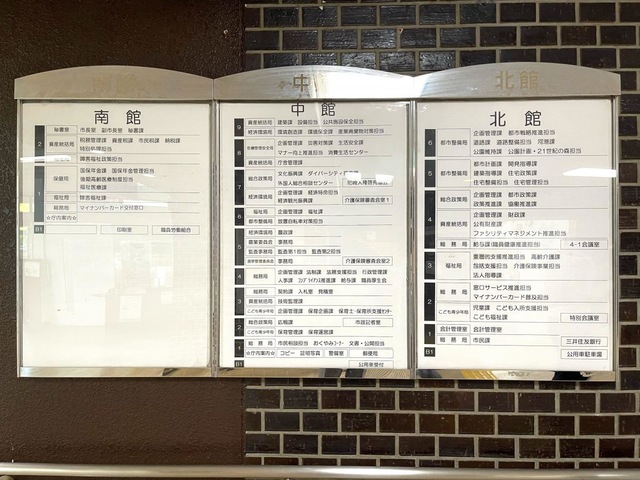 南館
秘書室 市長室 副市長室 秘書課
2 資産統括局 税務管理課 資産税課 市民税課 納税課
特別収滞担当
障害福祉政策担当
1 保健局 国保年金課 国保年金管理担当
後期高齢者医療制度担当
福祉医療課
福祉局 障害福祉課
総務局 マイナンバーカード交付窓口
☆庁内案内☆
B1 印刷室 職員労働組合
中
中館
9 資産統括局 建築課 設備担当 公共施設保全担当
経済環境局 環境創造課 環境保全課 産業廃棄物対策担当
8 企画管理課 災害対策課 生活安全課
マナー向上推進担当 消費生活センター
資産統括局 庁舎管理課
7 総合政策局 文化振興課
外国人総合相談センター
経済環境局 企画管理課 経済時局担当
経済観光振興課 介護保険審査会室1
6 福祉局 企画管理課 福祉課
都市整備局 放置自転車対策担当
経済環境局 農政課
5 農業委員会 事務局
監査事務局 監査第1担当 監査第2担当
事務局 介護保険審査会室2
4 総務局 企画管理課 法制課 法務支援担当 行政管理課
人事課 コンプライアンス推進課 給与課 職員厚生会
3 総務局 契約課 入札室 見積室
資産統括局 技術管理課
こども青少年局 企画管理課 保育企画課 保育士・保育所支援センター
2 総合政策局 広報課 市政記者室
こども青少年局 保育管理課 保育運営課
1 総務局 市民相談担当 おくやみコーナー 文書・公開担当
☆庁内案内☆ コピー 証明写真 警備室 郵便局
B1 公用車受付
北館
北館
6 都市整備局 企画管理課 都市戦略推進担当
道路課 道路整備担当 河港課
公園維持課 公園計画・21世紀の森担当
5 都市整備局 都市計画課 開発指導課
建築指導課 住宅政策課
住宅整備担当 住宅管理担当
4 総合政策局 企画管理課 都市政策課
政策推進課 協働推進課
資産統括局 企画管理課 財政課
公有財産課
ファシリティマネジメント推進担当
総務局 給与課(職員健康推進担当) 4-1会議室
3 福祉局 重層的支援推進担当 高齢介護課
包括支援担当 介護保険事業担当
法人指導課
2 総務局 窓口サービス推進担当
マイナンバーカード普及担当
こども青少年局 児童課 こども入所支援担当
こども福祉課 特別会議室
1 会計管理室 会計管理室
総務局 市民課 三井住友銀行
B1 公用車駐車場